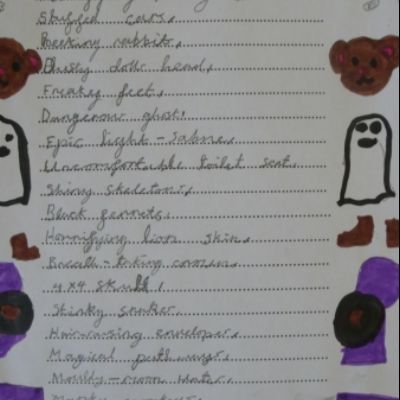 Stuffed cars,
Peeking rabbit,
Dusty doll head,
Freaky feet,
Dangerous ghost!
Epic light-sabre,
Uncomfortable toilet seat,
Shiny skeletons,
Black ferrets,
Horrifying lion skin,
Breath-taking
4x4 skull,
Stinky
Hair-raising envelopes,
Magical
Mouldy-moon water,